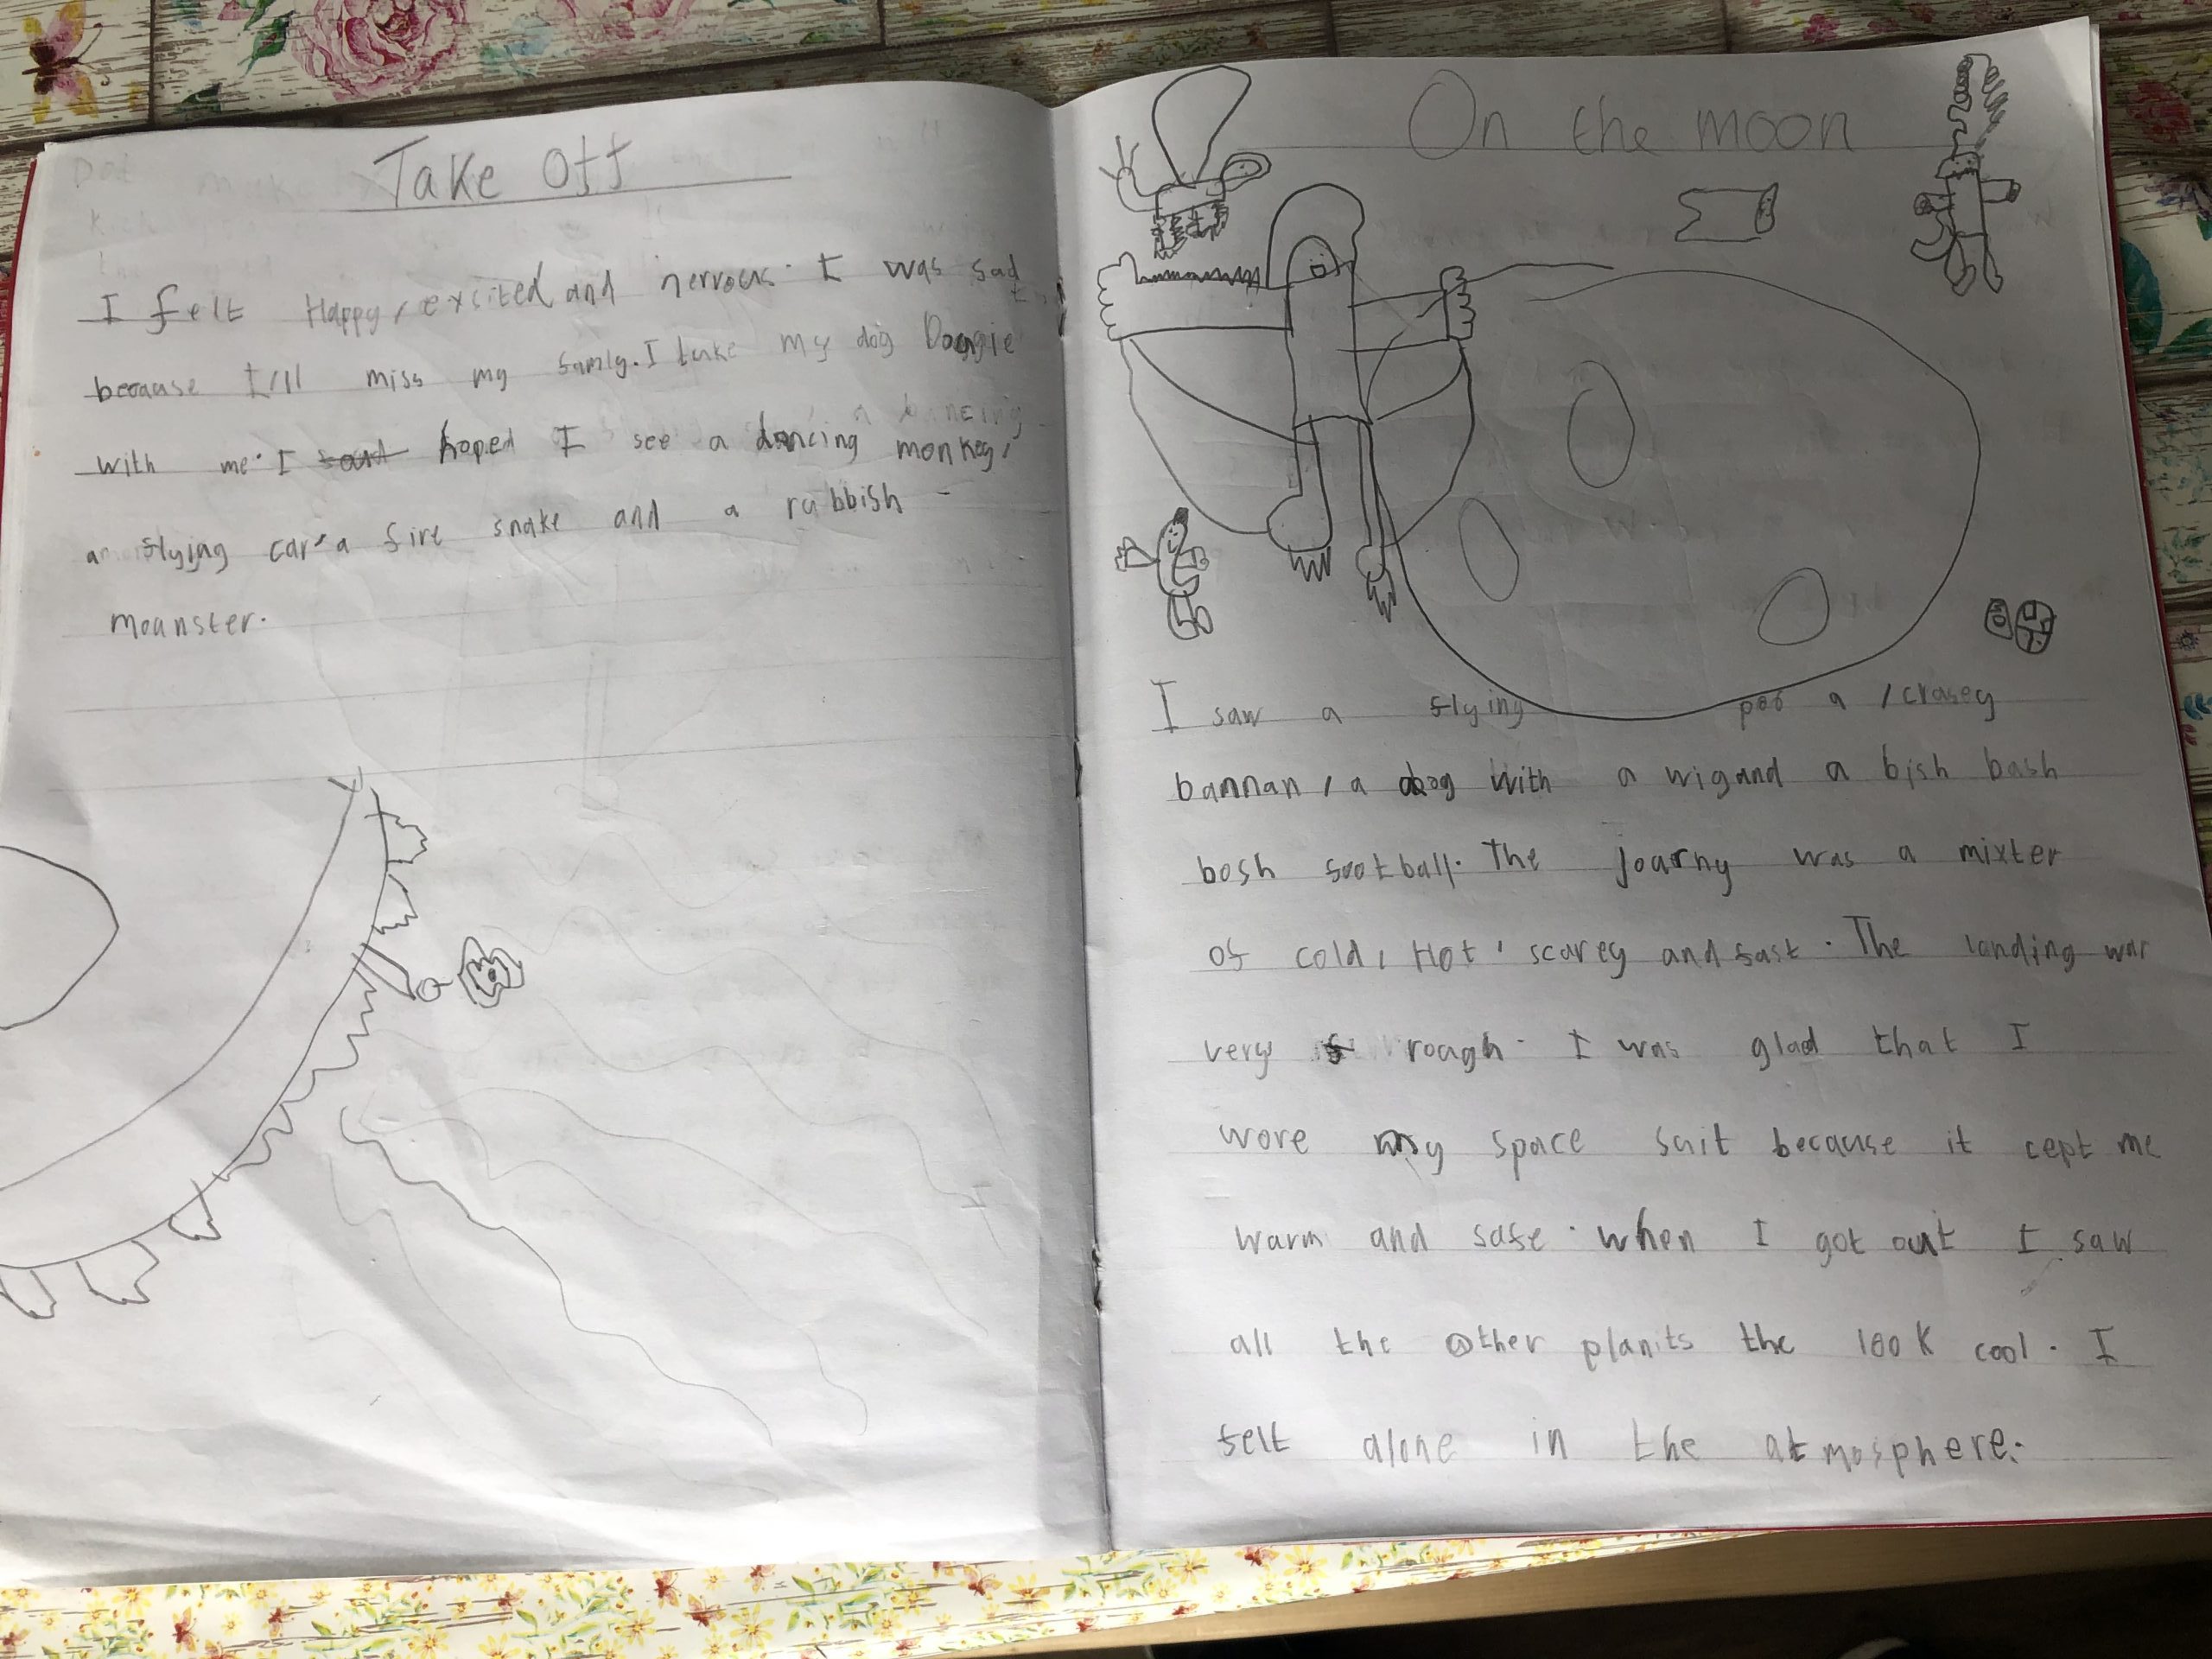 Take Off
I felt Happy, exsited and nervous. I was sad
because I'll miss my famly. I take my dog Doggie
with me. I hoped I see a dancing monkey,
a flying car, a fire snake and a rubbish
moanster.
On the moon
I saw a flying poo a, crasey
bannan, a dog with a wig and a bish bash
bosh football. The journy was a mixter
of cold, Hot, scarey and fast. The landing was
very rough. I was glad that I
wore my space suit because it cept me
warm and safe. when I got out I saw
all the other planits the look cool. I
felt alone in the atmosphere.